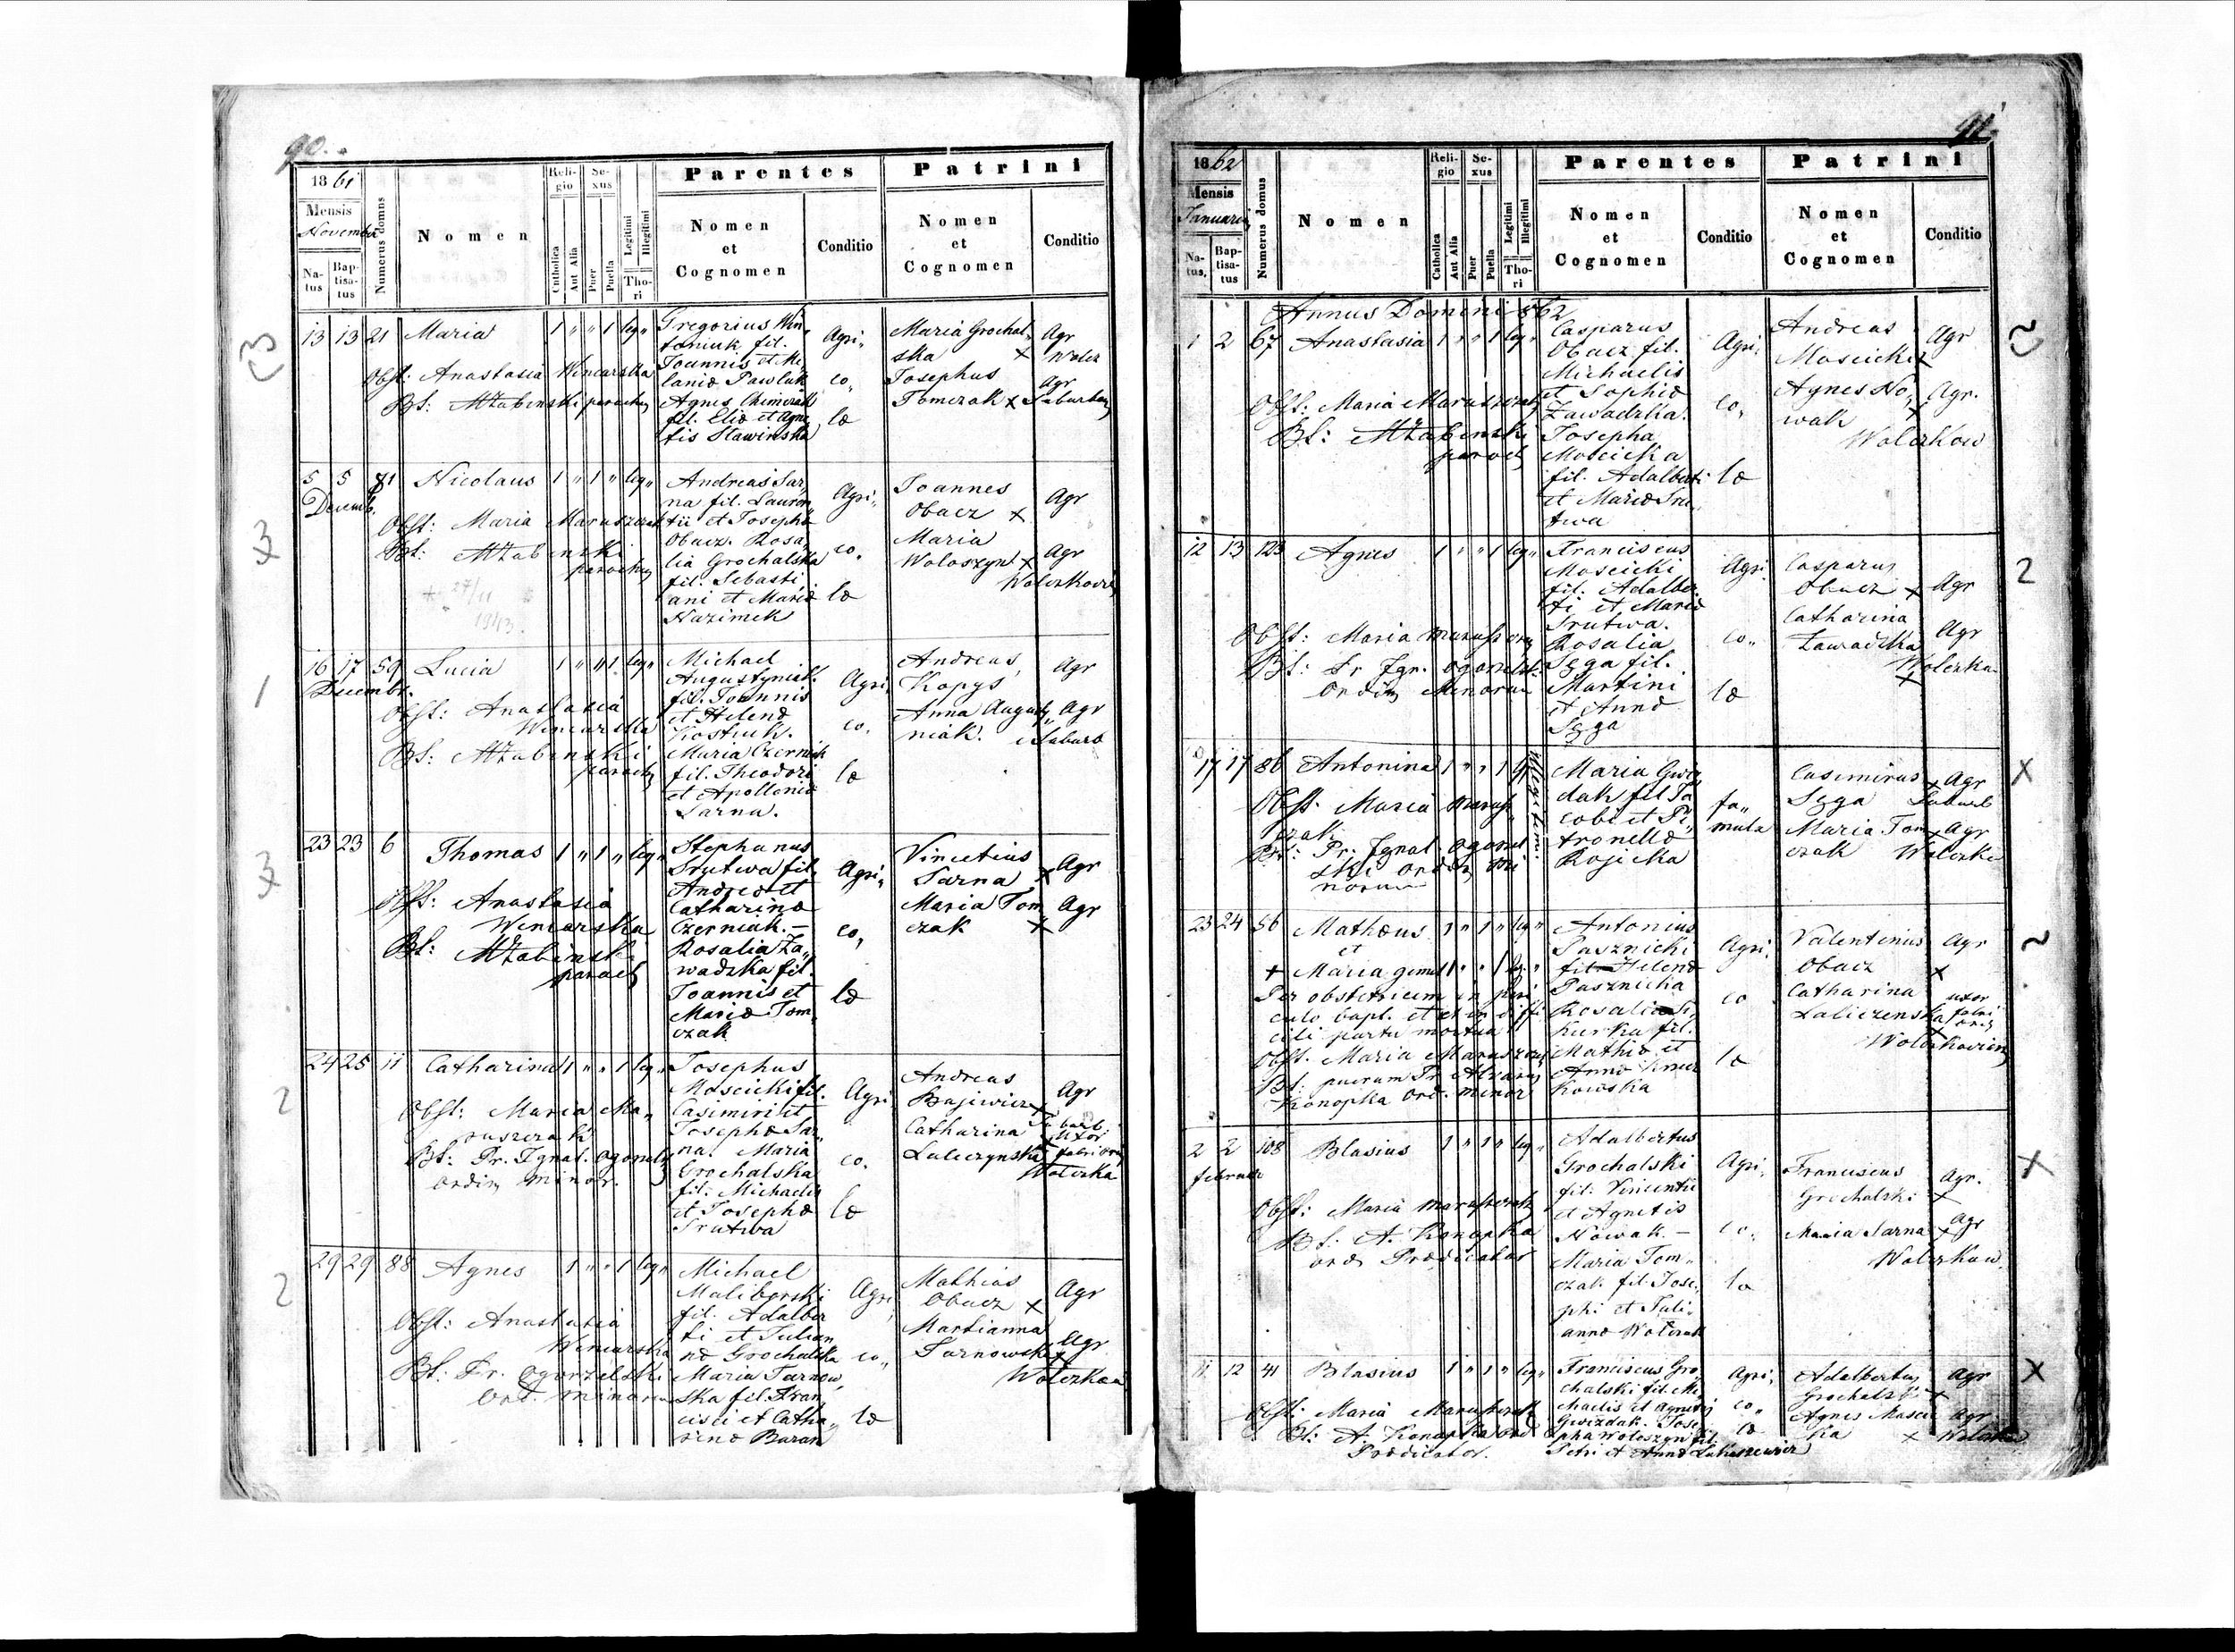 90.
1861
Mensis
Novembr
Na-
tus
Bap-
tisa-
tus
Numerus domus
Nomen
Reli-
gio
Catholica
Aut Alia
Se-
xus
Puer
Puella
Legitimi
Illegitimi
Tho-
ri
Parentes
Nomen
et
Cognomen
Conditio
Patrini
Nomen
et
Cognomen
Conditio
13 13 21 Maria 1 " " 1 leg"
Obst: Anastasia Winiarska
Bt: MŻabinski parochus
Gregorius
fil.
Joannis et Me,
laniæ Pawluk
Agnes
fil. Eliæ et Agne
tis Stawinska
Agri,,
co,
læ
Maria Grochal,
ska x
Josephus
Tomczak x
Agr
Wolcz
Agr
Suburban
5 5 81 Nicolaus 1 " 1 " leg"
Decemb.
Obst: Maria Maruszczak
Bt: MŻabinski
parochus
27/11
1943.
Andreas Sar,
na fil. Lauren
tii et Josephæ
Obacz. Rosa,
lia Grochalska
fil. Sebasti,
ani et Mariæ
Nazimek
Agri,,
co.
læ
Joannes
Obacz x
Maria
Woloszyn x
Agr
Agr
Wolczkovie
16 17 59 Lucia 1 " " 1 leg"
Decembr.
Obst: Anastasia
Winiarska
Bt: MŻabinski
paroch
Michael
Augustyniak
fil. Joannis
et Helenæ
Kostiuk.
Maria Czerniak
fil. Theodori
et Apolloniæ
Sarna.
Agri,
co.
læ
Andreas
Kopyś
Anna Augusty,,
niak.
Agr
Agr
Suburb
23 23 6 Thomas 1 " 1 " leg"
Obst: Anastasia
Winiarska
Bt: MŻabinski
paroch
Stephanus
Srutwa fil,
Andreæ et
Catharinæ
Czerniak. -
Rosalia Za,,
wadzka fil.
Joannis et
Mariæ Tom,
czak
Agri,,
co,
læ
Vincetius
Sarna x
Maria Tom
czak x
Agr
Agr
24 25 11 Catharina 1 " " 1 leg"
Obst: Maria Ma,,
ruszczak
Bt: Pr. Ignat. Ogonels
ordin minor.
Josephus
Moscicki fil.
Casimiri et
Josephæ Sar,,
na. Maria
Grochalska
fil: Michaelis
et Josephæ
Srutwa
Agri
co.
læ
Andreas
Bajewicz x
Catharina
Laliczynska
Agr
Suburb.
Uxor
fabri
Wolczka
29 29 88 Agnes 1 " " 1 leg"
Obst: Anastasia
Winiarska
Bt: Pr. Ogorzelski
Ord. minorum
Michael
Maliborski
fil. Adalber
ti et Julian
næ Grochalska
Maria Tarnow,
ska fil. Fran
cisci et Catha,,
rinæ Baran
Agri,
co,,
læ
Mathias
Obacz x
Marianna
Tarnowska x
Agr
Agr
Wolczkow
91.
1862
Mensis
Januarii
Na-
tus.
Bap-
tisa-
tus
Numerus domus
Nomen
Reli-
gio
Catholica
Aut Alia
Se-
xus
Puer
Puella
Legitimi
Illegitimi
Tho-
ri
Parentes
Nomen
et
Cognomen
Conditio
Patrini
Nomen
et
Cognomen
Conditio
Annus Domini 862
1 2 67 Anastasia 1 " " 1 leg"
Obst: Maria Maruszczak
Bt: MŻabinski
paroch
Casparus
Obacz fil.
Michaelis
et Sophiæ
Zawadzka.
Josepha
Moscicka
fil. Adalberti
et Mariæ Sru,
twa
Agri,
co,
læ
Andreas
Moscicki x
Agnes No,
wak x
Agr
Agr.
Wolczkow
12 13 123 Agnes 1 " " 1 leg"
Obst: Maria Maruszczak
Bt: Pr Ign. Ogonelski
Ordin Minorum
Franciscus
Moscicki
fil. Adalber
ti et Mariæ
Srutwa.
Rosalia
Sęga fil.
Martini
et Annæ
Sęga
Agri
co,,
læ
Casparus
Obacz x
Catharina
Zawadzka
x
Agr
Agr
Wolczka
17 17 86 Antonina 1 " " 1
Illegitimi
Obst. Maria Marusz
czak
Bt: Pr. Ignat Ogonel
ski Ordin Mi
norum
Maria Gwiz
dak fil Ja
cobi et Pe,,
tronellæ
Rojicka
fa,,
mula
Casimirus
Sęga x
Maria Tom
czak x
Agr
Suburb
Agr
Wolczko
23 24 56 Mathæus 1 " 1 " leg"
et
+ Maria gemel 1 " " 1 leg "
Per obstetricem in peri
culo bapt. et ex in diffi
cili partu mortua
Obst. Maria Maruszczak
Bt: puerum Pr Alvarus
Konopka Ord. minor
Antonius
Pasznicki
fil Helenæ
Pasznicka
Rosalia
fil.
Mathiæ et
Annæ
kowska
Agri,
co
læ
Valentinus
Obacz x
Catharina
Laliczenska
Agr
uxor
fabri
Wolczkoviens
2 2 108 Blasius 1 " 1 " leg"
februar
Obst: Maria Maruszczak
Bt: A. Konopka
ord. Prædicator
Adalbertus
Grochalski
fil: Vincentii
et Agnetis
Nowak. -
Maria Tom,,
czak fil. Jose,
phi et Juli,
annæ Wołczak
Agri,
co,
læ
Franciscus
Grochalski x
Maria Sarna x
Agr.
Agr
Wolczkow.
11 12 41 Blasius 1 " 1 " leg"
Obst: Maria Maruszczak
Bt: A. Konopka ord
Prædicator.
Franciscus Gro,
chalski fil. Mi,
chaelis et Agnetis
Gwizdak. Jose,
pha Woloszyn fil.
Petri et Annæ Lukaszewicz
Agri,
co,,
læ
Adalbertus
Grochalski x
Agnes Mosci
ka x
Agr
Agr
Wolczko